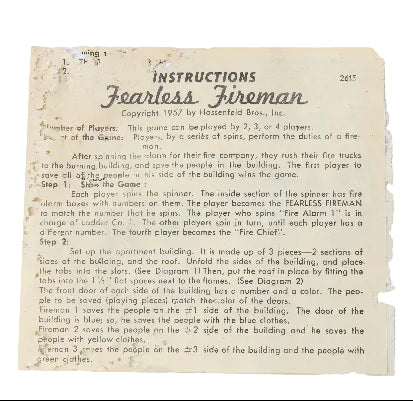 1.
2.
INSTRUCTIONS 2615
Fearless Fireman
Copyright 1957 by Hassenfeld Bros., Inc.
Number of Players: This game can be played by 2, 3, or 4 players.
of the Game: Players, by a series of spins, perform the duties of a fire-
man.
After spinning the alarm for their fire company, they rush their fire trucks
to the burning building, and save the people in the building. The first player to
save all of the people in his side of the building wins the game.
Step 1: Start the Game:
Each player spins the spinner. The inside section of the spinner has fire
alarm boxes with numbers on them. The player becomes the FEARLESS FIREMAN
to match the number that he spins. The player who spins "Fire Alarm 1" is in
charge of Ladder Co. 1. The other players spin in turn, until each player has a
different number. The fourth player becomes the "Fire Chief".
Step 2:
Set up the apartment building. It is made up of 3 pieces—2 sections of
sides of the building, and the roof. Unfold the sides of the building, and place
the tabs into the slots. (See Diagram 1) Then, put the roof in place by fitting the
tabs into the 1½" flat spaces next to the flames. (See Diagram 2)
The front door of each side of the building has a number and a color. The peo-
ple to be saved (playing pieces) match the color of the doors.
Fireman 1 saves the people on the #1 side of the building. The door of the
building is blue; so, he saves the people with the blue clothes.
Fireman 2 saves the people on the #2 side of the building and he saves the
people with yellow clothes.
Fireman 3 saves the people on the #3 side of the building and the people with
green clothes.